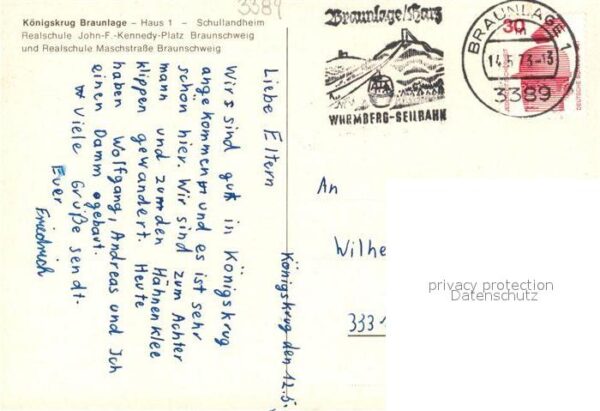 3389
Königskrug Braunlage – Haus 1 – Schullandheim
Realschule John-F.-Kennedy-Platz Braunschweig
und Realschule Maschstraße Braunschweig
Braunlage/Harz
WURMBERG-SEILBAHN
BRAUNLAGE 1
14.5.73-13
3389
30
DEUTSCHE
Königskrug den 12.5.
Liebe Eltern
Wir sind gut in Königskrug
angekommen und es ist sehr
schön hier. Wir sind zum Achter
mann und zu den Hähnenklee
klippen gewandert. Heute
haben Wolfgang, Andreas und Ich
einen Damm gebaut.
Viele Grüße sendt.
Euer
Friedrich
An
Wilhe
333
privacy protection
Datenschutz